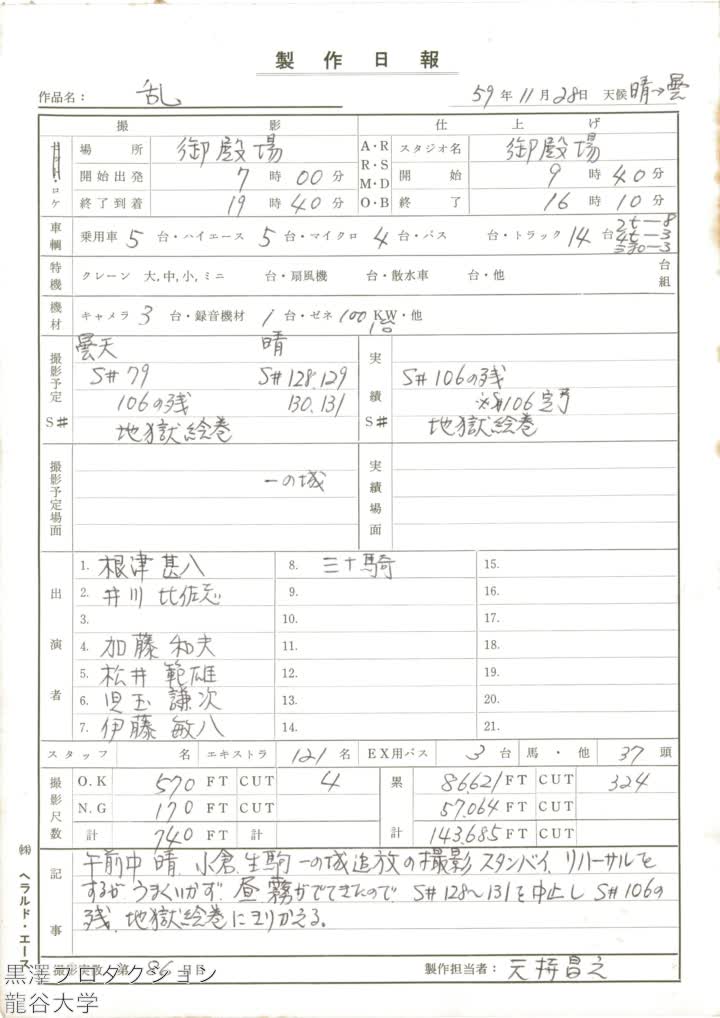 製作日報
作品名： 乱 59年11月28日 天候 晴→曇
撮影 仕上げ
ロケ 場所 御殿場 A・R スタジオ名 御殿場
開始出発 7時00分 R・S 開始 9時40分
M・D
終了到着 19時40分 O・B 終了 16時10分
車輌 乗用車 5台・ハイエース 5台・マイクロ 4台・バス 台・トラック 14台 2t-8 4t-3
特機 クレーン 大,中,小,ミニ 台・扇風機 台・散水車 台・他 台組
機材 キャメラ 3台・録音機材 1台・ゼネ 100KW・他
1台
撮影予定 S# 曇天 晴 実績 S#
S#79 S#128.129 S#106の残
106の残 130.131 ※S#106完了
地獄絵巻 地獄絵巻
撮影予定場面 一の城 実績場面
出演者
1. 根津甚八 8. 三十騎 15.
2. 井川比佐志 9. 16.
3. 10. 17.
4. 加藤和夫 11. 18.
5. 松井範雄 12. 19.
6. 児玉謙次 13. 20.
7. 伊藤敏八 14. 21.
スタッフ 名 エキストラ 121名 EX用バス 3台 馬・他 37頭
撮影尺数 O.K 570 FT CUT 4 累計 86,621 FT CUT 324
N.G 170 FT 57,064 FT
計 740 FT 計 143,685 FT
記事
午前中晴、小倉、生駒 一の城追放の撮影、スタンバイ、リハーサルを
するがうまくいかず、昼霧がでてきたので、S#128〜131を中止し S#106の
残、地獄絵巻にきりかえる。
撮影実数 第86日目 製作担当者：
㈱ヘラルド・エース
黒澤プロダクション
龍谷大学